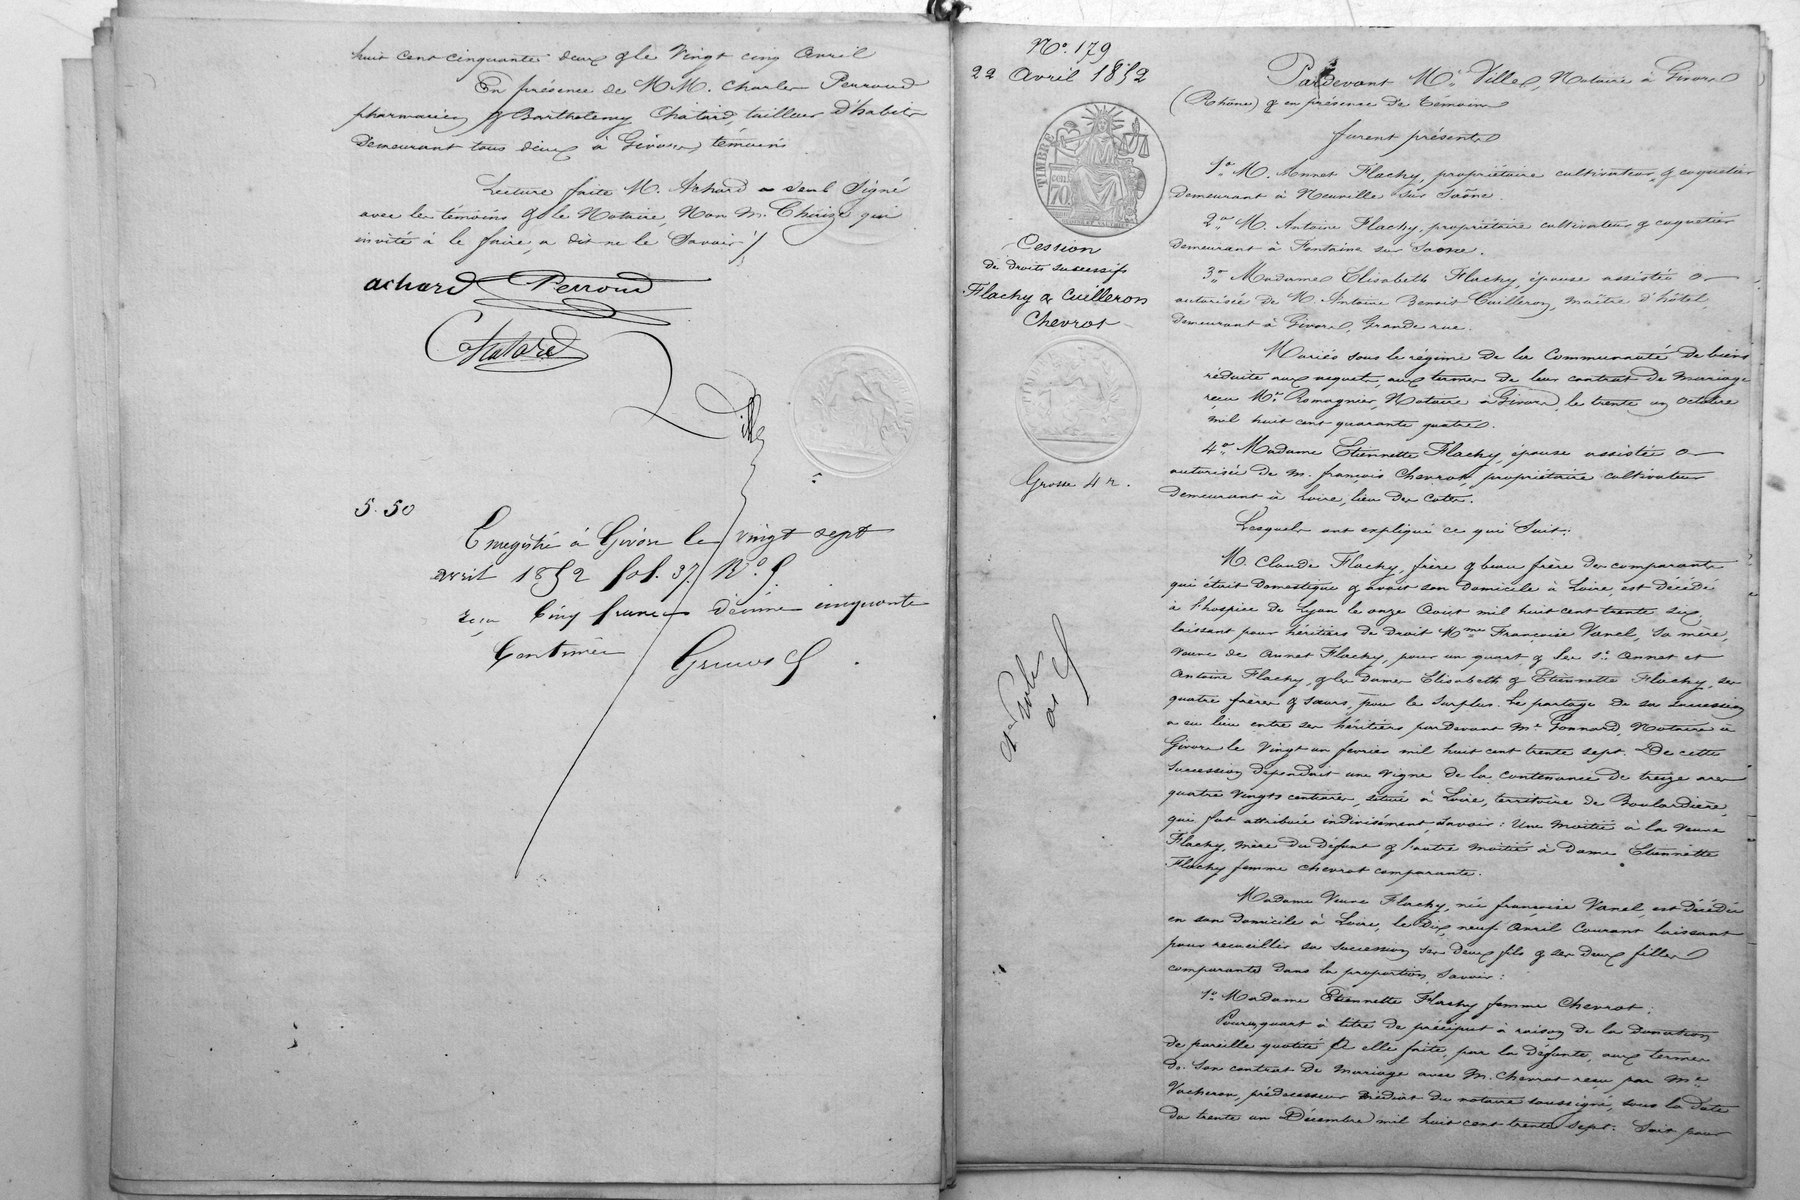 huit cent cinquante deux & le Vingt cinq Avril
En présence de M.M. Charles Perroud
pharmacien & Barthelemy Chatard, tailleur d'habits
Demeurant tous deux à Givors, témoins
Lecture faite M. Achard a seul Signé
avec les témoins & le Notaire, Non M. Chaize qui
invité à le faire, a dit ne le Savoir /
achard Perroud
Chatard
Ville
5.50
Enregistré à Givors le vingt sept
avril 1852 fol. 37.
reçu Cinq francs décime cinquante
Centimes
No. 179
22 Avril 1852
TIMBRE
70
Cession
de droits successifs
Flachy & Cuilleron
Chevrot
Grosse 4 r.
Pardevant Me. Ville, Notaire à Givors
(Rhône) & en présence de témoins
furent présents
1o. M. Annet Flachy, propriétaire cultivateur & coquetier
demeurant à Neuville Sur Saône.
2o. M. Antoine Flachy, propriétaire cultivateur & coquetier
demeurant à Fontaine sur Saône.
3o. Madame Elisabeth Flachy, épouse assistée &
autorisée de M. Antoine Benoit Cuilleron, maître d'hôtel,
demeurant à Givors, Grande rue.
Mariés sous le régime de la Communauté de biens
réduite aux acquets, aux termes de leur contrat de mariage
reçu Me. Romagnier, Notaire à Givors, le trente un octobre
mil huit cent quarante quatre.
4o. Madame Etiennette Flachy épouse assistée &
autorisée de M. françois Chevrot, propriétaire cultivateur
demeurant à Loire, lieu des Cotes.
Lesquels ont expliqué ce qui Suit:
M. Claude Flachy, frère & beau frère des comparants
qui était Domestique & avait son domicile à Loire, est décédé
à l'hospice de Lyon le onze Aout mil huit cent trente six,
laissant pour héritiers de droit Mme Françoise Vanel, sa mère,
Veuve de Annet Flachy, pour un quart & les Srs. Annet et
Antoine Flachy, & les Dames Elisabeth & Etiennette Flachy, ses
quatre frères & soeurs, pour le Surplus. Le partage de sa succession
a eu lieu entre ses héritiers pardevant Me Gonnard, Notaire à
Givors le Vingt un février mil huit cent trente sept. De cette
succession dépendait une vigne de la contenance de treize ares
quatre vingts centiares, située à Loire, territoire de Boulardière,
qui fut attribuée indivisément, savoir: Une moitié à la Veuve
Flachy, mère du défunt & l'autre moitié à Dame Etiennette
Flachy femme Chevrot comparante.
Madame Veuve Flachy, née françoise Vanel, est décédée
en son domicile à Loire, le dix neuf Avril Courant laissant
pour recueillir sa succession ses deux fils & ses deux filles
comparants dans la proportion, savoir:
1o. Madame Etiennette Flachy femme Chevrot:
Pour quart à titre de préciput à raison de la donation
de pareille quotité à elle faite, par la défunte, aux termes
de Son contrat de Mariage avec M. Chevrot reçu par Me
Vacheron, prédécesseur médiat du notaire soussigné, sous la date
du trente un Décembre mil huit cent trente sept: Soit pour